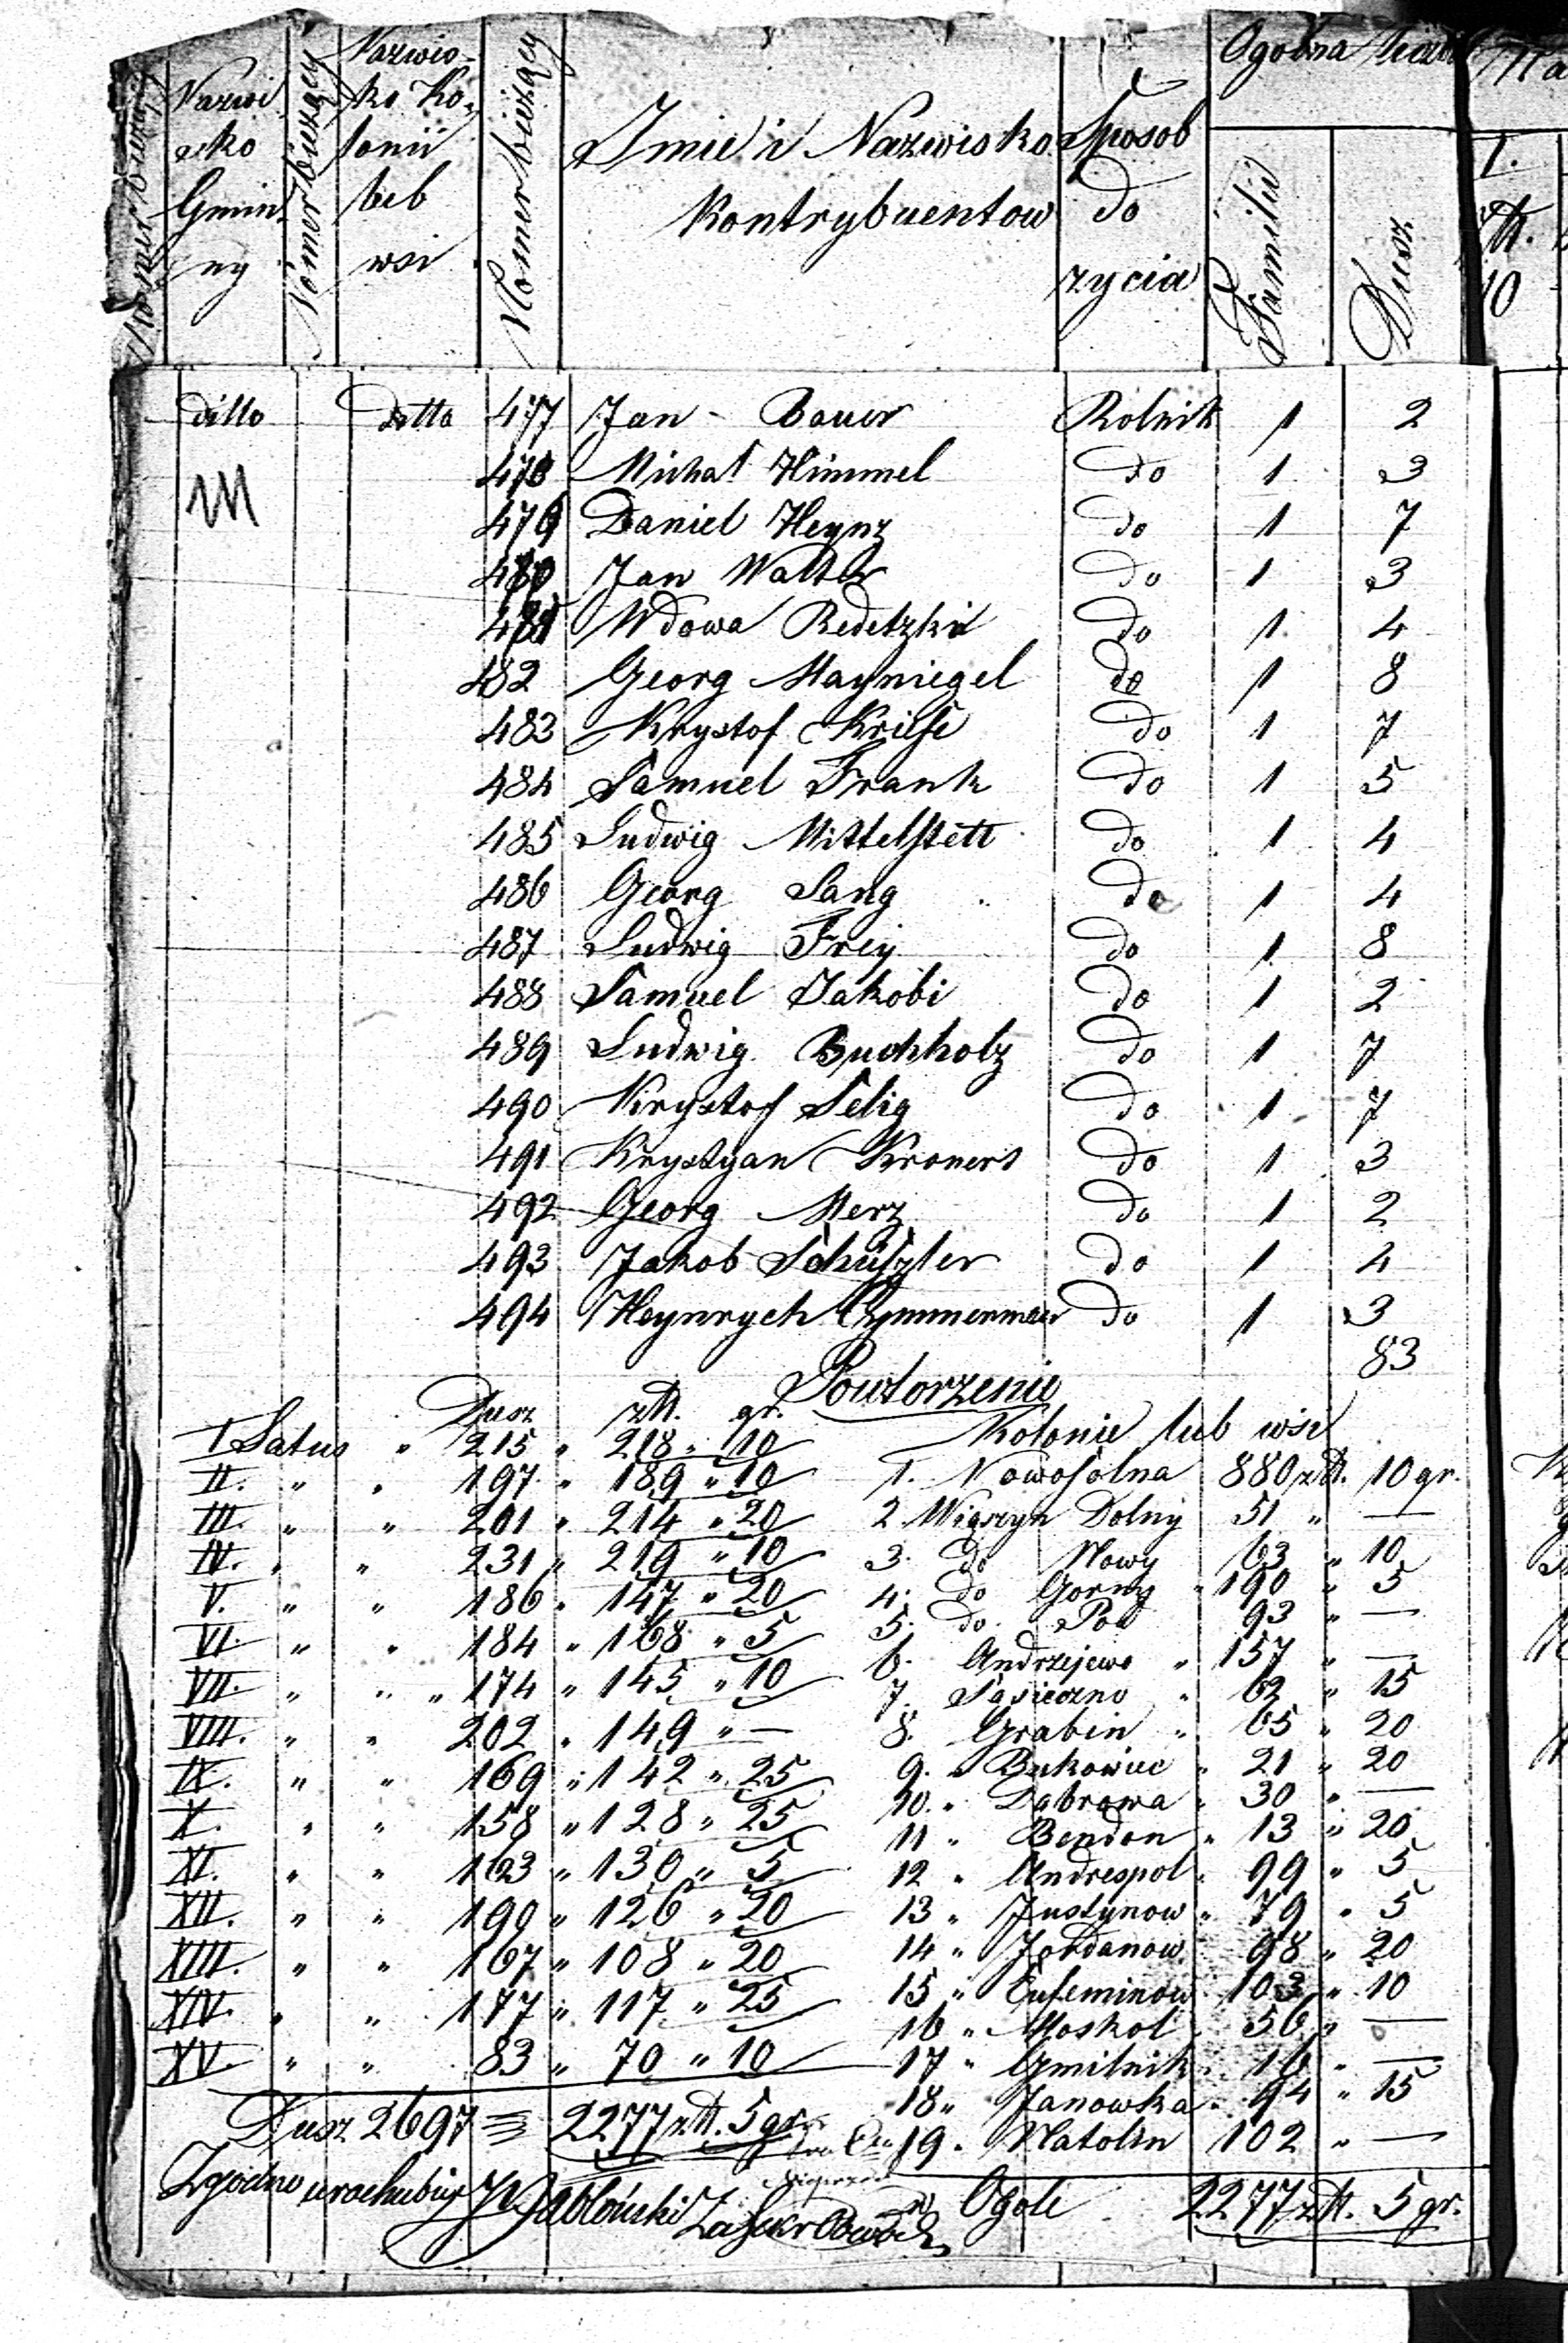 Nomer bieżący
Nazwisko Gminny
Nomer bieżący
Nazwisko Kolonii lub wsi
Nomer bieżący
Imie i Nazwisko Kontrybuentow
Sposob do zycia
Ogolna liczba
Familii
Dusz
I.
10
ditto ditto 477 Jan - Bauer Rolnik 1 2
478 Michał Himmel do 1 3
479 Daniel Heynz do 1 7
480 Jan Walter do 1 3
481 Wdowa Redetzki do 1 4
482 Georg Mayniegel do 1 8
483 Krystof Kriese do 1 7
484 Samuel Frank do 1 5
485 Ludwig Mittelstett do 1 4
486 Georg Lang do 1 4
487 Ludwig Frey do 1 8
488 Samuel Jakobi do 1 2
489 Ludwig Buchholz do 1 7
490 Krystof Selig do 1 7
491 Krystyan Kronert do 1 3
492 Georg Merz do 1 2
493 Jakob Schützler do 1 4
494 Heynrych Cymmerman do 1 3
83
Powtorzenie
Dusz złt. gr. Kolonie lub wsie
I Latus " 215 " 218 " 10
II. " " 197 " 189 " 10
III. " " 201 " 214 " 20
IV. " " 231 " 219 " 10
V. " " 186 " 147 " 20
VI. " " 184 " 168 " 5
VII. " " 174 " 145 " 10
VIII. " " 202 " 149 " —
IX. " " 169 " 142 " 25
X. " " 158 " 128 " 25
XI. " " 163 " 130 " 5
XII. " " 190 " 126 " 20
XIII. " " 167 " 108 " 20
XIV. " " 177 " 117 " 25
XV. " " 83 " 70 " 10
Dusz 2697 = 2277 złt. 5 gr.
1. Nowosolna 880 złt. 10 gr.
2 Wiączyn Dolny 51 " —
3. do Nowy 63 " 10
4. do Gorny " 190 " 5
5. do Pod 93 " —
6. Andrzejewo " 157 " —
7. Sąsieczno " 62 " 15
8. Grabin " 65 " 20
9. " Bukowiec " 21 " 20
10. " Dąbrowa " 30 " —
11 " Bendon " 13 " 20
12 " Andrespol " 99 " 5
13 " Justynow " 79 " 5
14 " Jordanow " 98 " 20
15 " Eufeminow 103 " 10
16 " Moskol " 56 " —
17 " Gmilnik " 16 " —
18 " Janowka " 94 " 15
19 " Natolin 102 " —
Ogole 2277 złt. 5 gr.
Zgodno Jabłoński